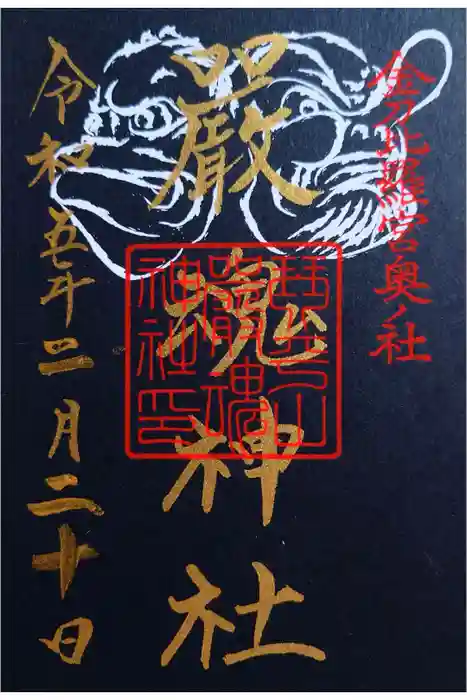 金刀比羅宮奥ノ社
嚴魂神社
琴平山
嚴魂
神社印
令和五年二月二十日